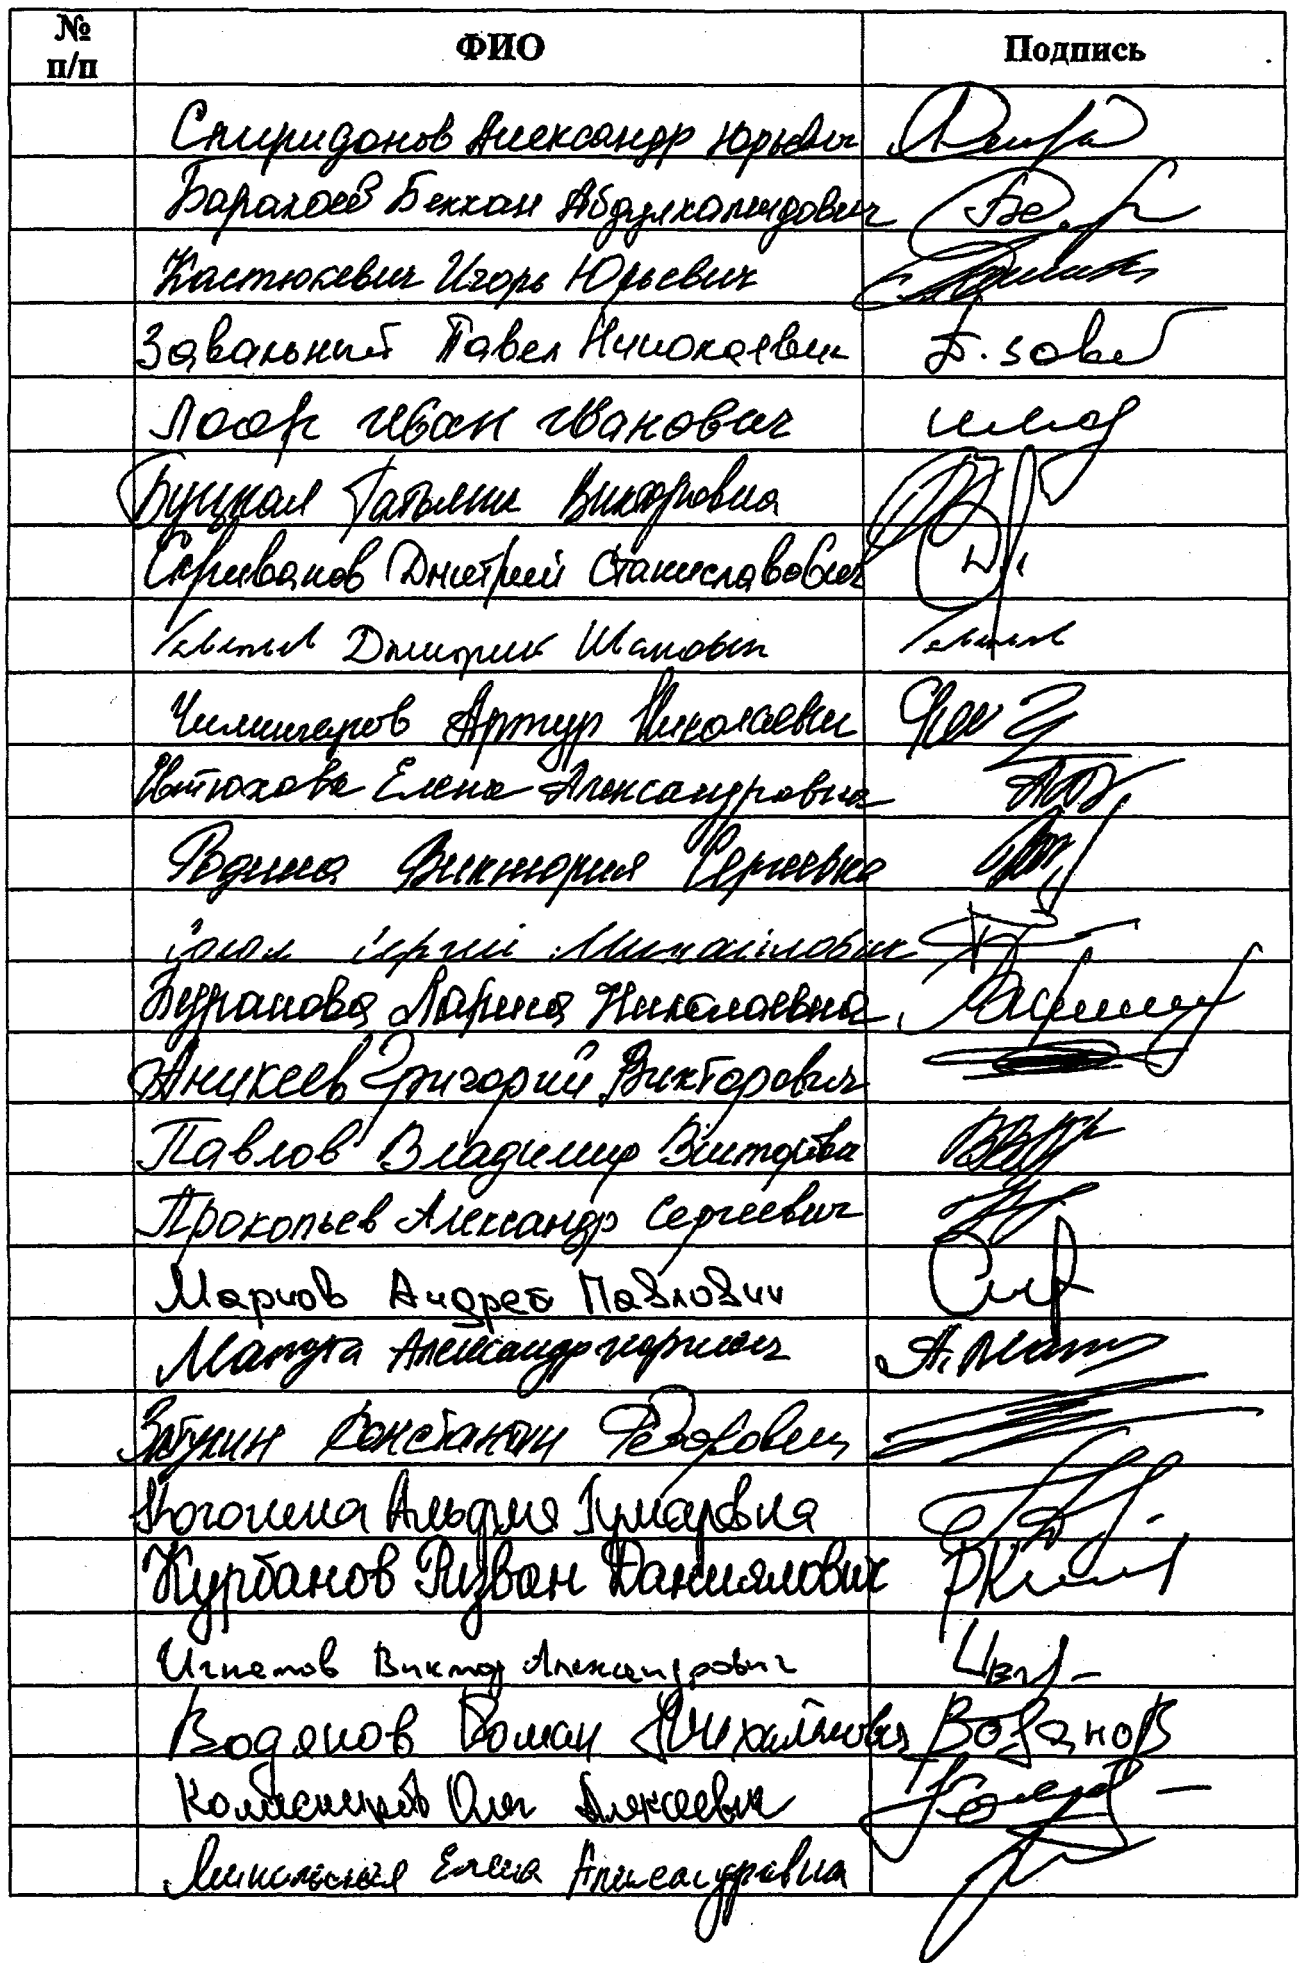 № п/п ФИО Подпись
Спиридонов Александр Юрьевич
Барахоев Бекхан Абдулхамидович
Кастюкевич Игорь Юрьевич
Завальный Павел Николаевич П. Заве
Лоор Иван Иванович
Буцкая Татьяна Викторовна
Скриванов Дмитрий Станиславович
Дмитрий
Чилингаров Артур Николаевич
Евтюхова Елена Александровна
Родина Виктория Сергеевна
Сергей Михайлович
Буранова Лариса Николаевна
Аникеев Григорий Викторович
Павлов Владимир Викторович
Прокопьев Александр Сергеевич
Марков Андрей Павлович
Мажуга Александр Георгиевич А. Маж
Затулин Константин Федорович
Когогина Альфия Гумаровна
Курбанов Ризван Даниялович
Игнатов Виктор Александрович
Водянов Роман Михайлович Водянов
Колесников Олег Алексеевич
Елена Александровна